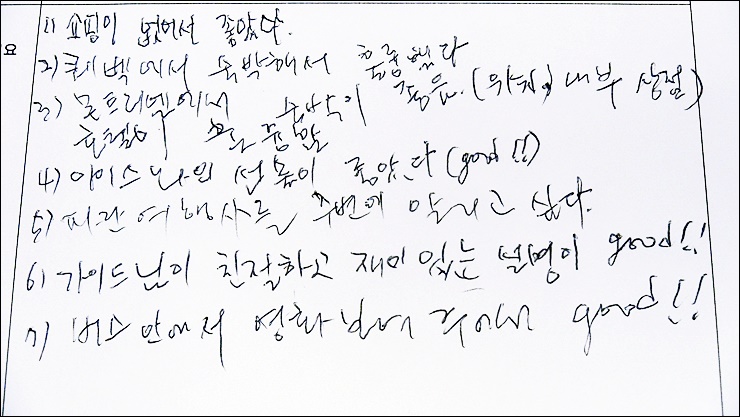 요
1) 쇼핑이 없어서 좋았다.
2) 퀘벡에서 숙박해서 훌륭했다
3) 몬트리얼에서 숙박이 좋음. (위치, 내부 상절)
호텔이
4) 아이스와인 선물이 좋았다 (good!!)
5) 파란여행사를 주변에 알리고 싶다.
6) 가이드님이 친절하고 재미있는 설명이 good!!
7) 버스안에서 영화 보여주어서 good!!